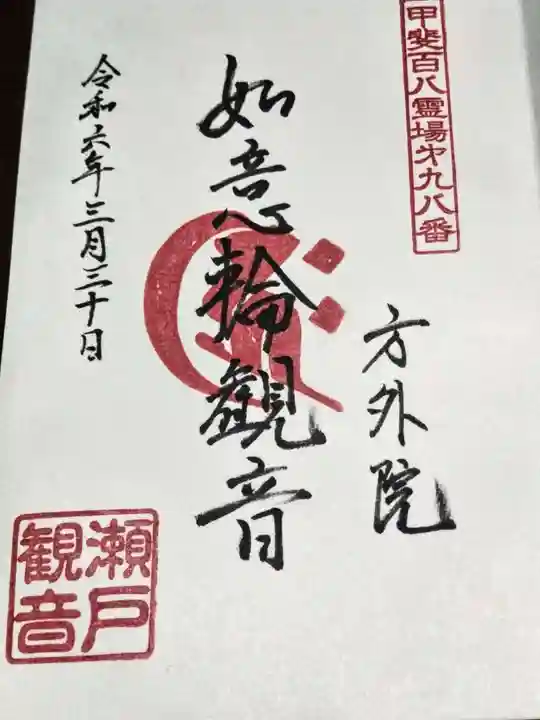 甲斐百八霊場第九八番
方外院
如意輪観音
令和六年三月三十日
瀬戸
観音